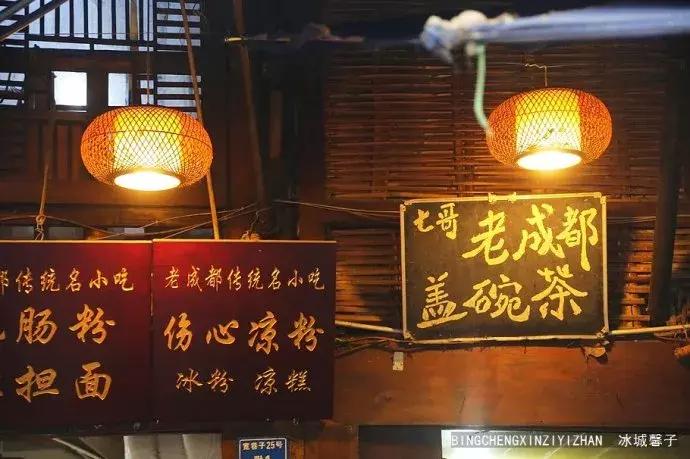 都传统名小吃
肠粉
担面
老成都传统名小吃
伤心凉粉
冰粉 凉糕
七哥 老成都
盖碗茶
宽巷子25号
BINGCHENGXINZIYIZHAN 冰城馨子